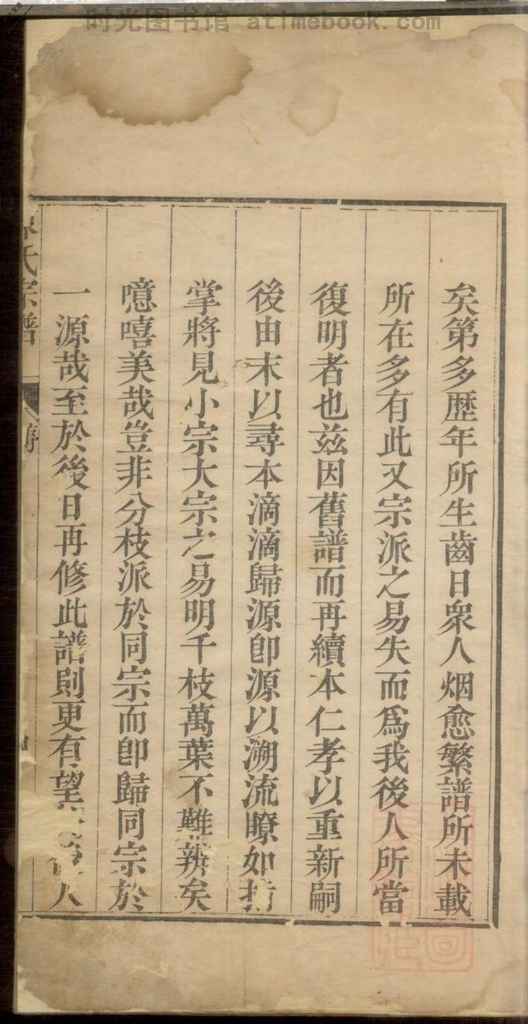 时光图书馆 atimebook.com
矣第多歷年所生齒日衆人烟愈繁譜所未載
所在多有此又宗派之易失而爲我後人所當
復明者也玆因舊譜而再續本仁孝以重新嗣
後由末以尋本滴滴歸源卽源以溯流瞭如指
掌將見小宗大宗之易明千枝萬葉不難辨矣
噫嘻美哉豈非分枝派於同宗而卽歸同宗於
一源哉至於後日再修此譜則更有望人
氏宗譜